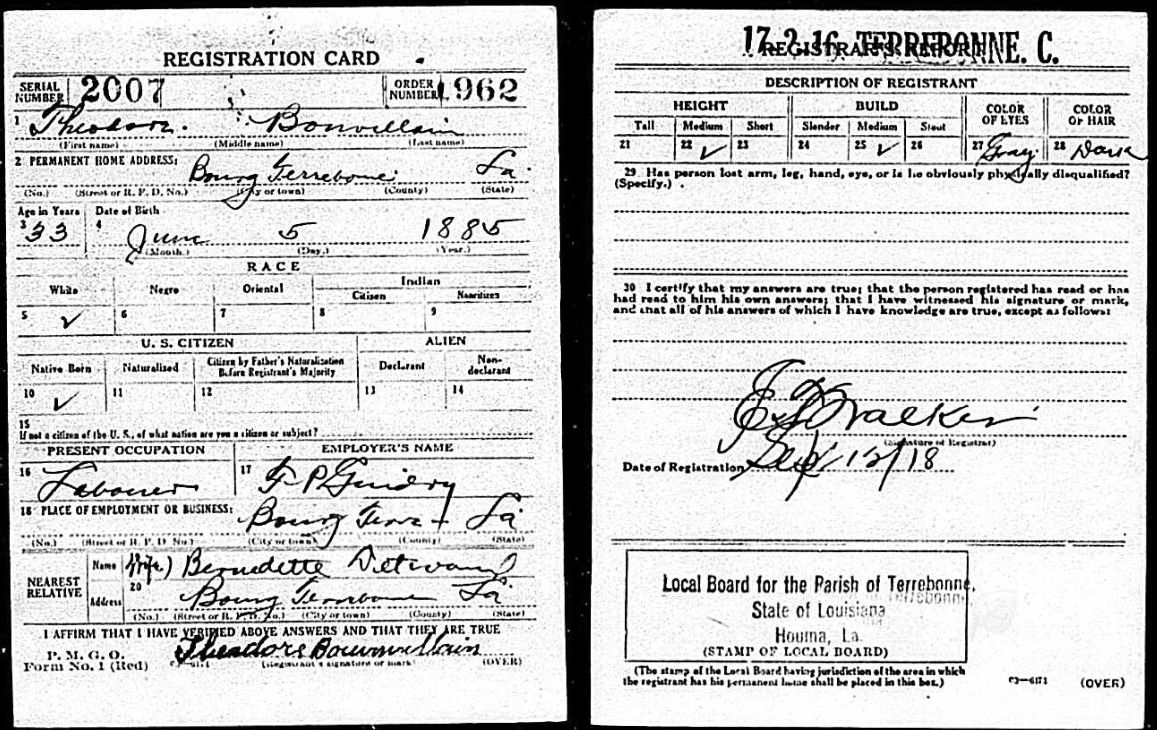 REGISTRATION CARD
SERIAL NUMBER 2007 ORDER NUMBER 962
1 Theodore. Bonvillain
(First name) (Middle name) (Last name)
2 PERMANENT HOME ADDRESS:
Bourg Terrebonne La.
(No.) (Street or R. F. D. No.) (City or town) (County) (State)
Age in Years Date of Birth
3 33 4 June 5 1885
(Month.) (Day.) (Year.)
RACE
White Negro Oriental Indian
Citizen Noncitizen
5 ✓ 6 7 8 9
U. S. CITIZEN ALIEN
Native Born Naturalized Citizen by Father's Naturalization Before Registrant's Majority Declarant Non-declarant
10 ✓ 11 12 13 14
15
If not a citizen of the U. S., of what nation are you a citizen or subject?
PRESENT OCCUPATION EMPLOYER'S NAME
16 Labourer 17 F. P. Guidry
18 PLACE OF EMPLOYMENT OR BUSINESS:
Bourg Terre La
(No.) (Street or R. F. D. No.) (City or town) (County) (State)
NEAREST RELATIVE
Name (Wife) Bernedette
20
Address Bourg Terrebonne La
(No.) (Street or R. F. D. No.) (City or town) (County) (State)
I AFFIRM THAT I HAVE VERIFIED ABOVE ANSWERS AND THAT THEY ARE TRUE
P. M. G. O.
Form No. 1 (Red) Theodore
(Registrant's signature or mark) (OVER)
17-2-16 TERREBONNE. C.
REGISTRAR'S REPORT
DESCRIPTION OF REGISTRANT
HEIGHT BUILD COLOR OF EYES COLOR OF HAIR
Tall Medium Short Slender Medium Stout
21 22 ✓ 23 24 25 ✓ 26 27 Gray 28 Dark
29 Has person lost arm, leg, hand, eye, or is he obviously physically disqualified?
(Specify.) .
30 I certify that my answers are true; that the person registered has read or has
had read to him his own answers; that I have witnessed his signature or mark,
and that all of his answers of which I have knowledge are true, except as follows:
Walker
(Signature of Registrar)
Date of Registration Sept 12/18
Local Board for the Parish of Terrebonne,
State of Louisiana
Terrebonne
Houma, La.
(STAMP OF LOCAL BOARD)
(The stamp of the Local Board having jurisdiction of the area in which
the registrant has his permanent home shall be placed in this box.)
03—6171 (OVER)